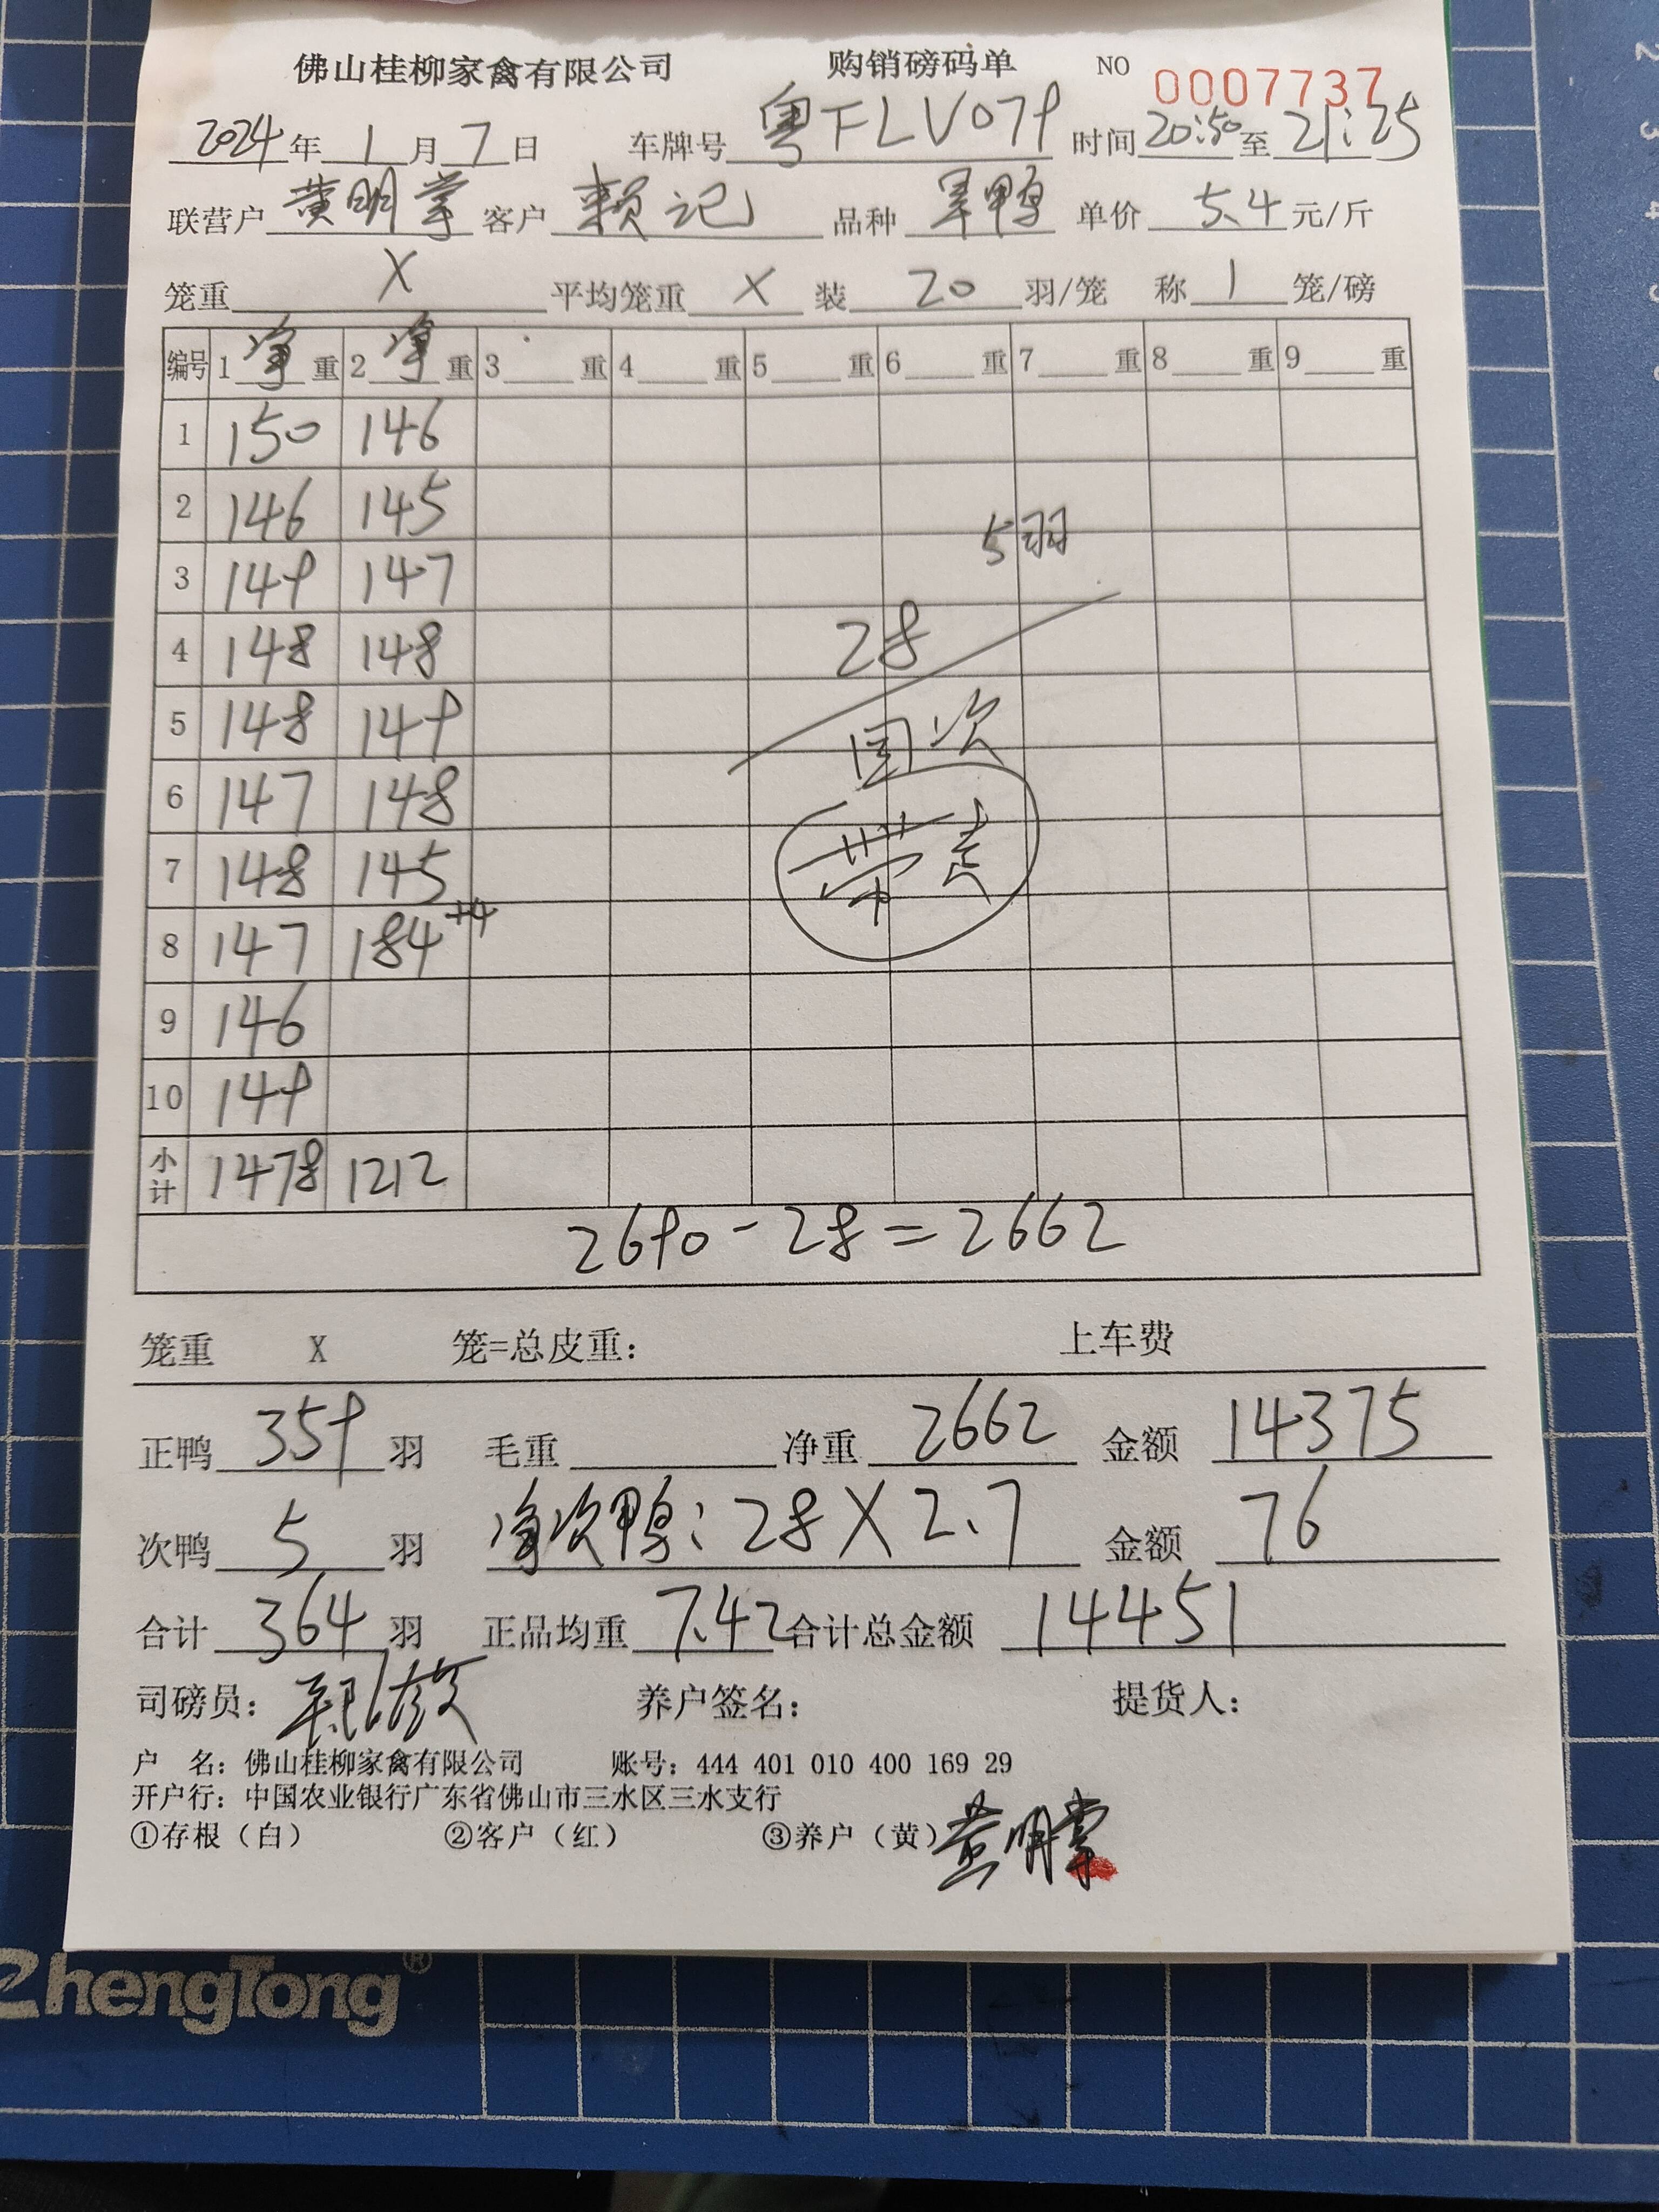 佛山桂柳家禽有限公司 购销磅码单 NO 0007737
2024年1月7日 车牌号 粤FLV079 时间 20:50至21:25
联营户 黄明掌 客户 赖记 品种 旱鸭 单价 5.4 元/斤
笼重 X 平均笼重 X 装 20 羽/笼 称 1 笼/磅
编号 1 净 重 2 净 重 3 重 4 重 5 重 6 重 7 重 8 重 9 重
1 150 146
2 146 145
3 149 147
4 148 148
5 148 149
6 147 148
7 148 145
8 147 184+4
9 146
10 149
小计 1478 1212
5羽
28
次
带走
2690-28=2662
笼重 X 笼=总皮重: 上车费
正鸭 359 羽 毛重 净重 2662 金额 14375
次鸭 5 羽 净次鸭: 28X2.7 金额 76
合计 364 羽 正品均重 7.42 合计总金额 14451
司磅员: 养户签名: 提货人:
户 名: 佛山桂柳家禽有限公司 账号: 444 401 010 400 169 29
开户行: 中国农业银行广东省佛山市三水区三水支行
①存根(白) ②客户(红) ③养户(黄) 黄明掌
ZhengTong®